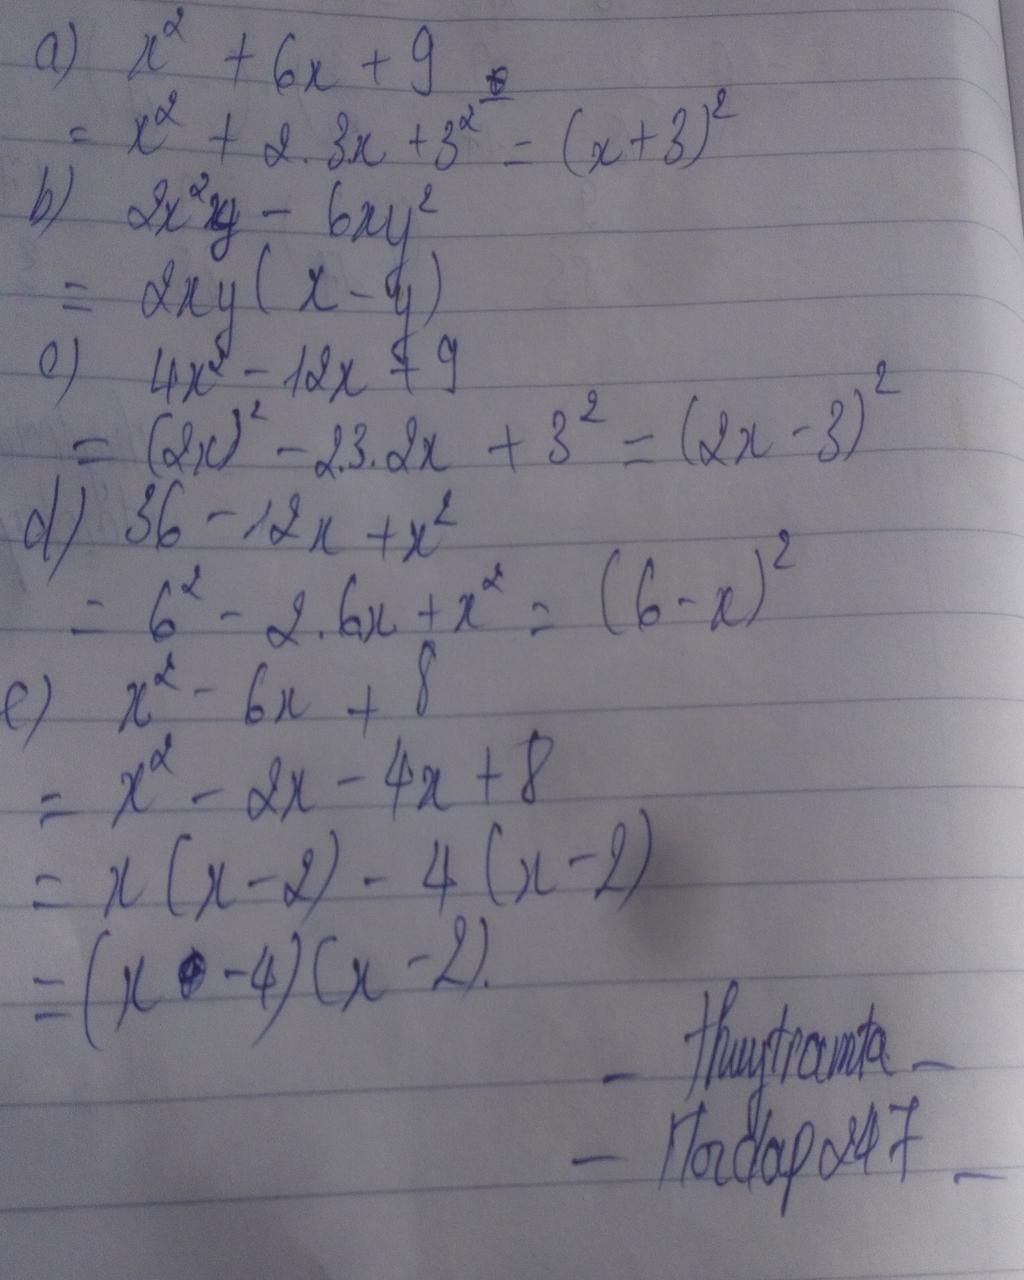 a) x² + 6x + 9
= x² + 2.3x + 3² = (x+3)²
b) 2x²y - 6xy²
= 2xy(x-y)
c) 4x² - 12x + 9
= (2x)² - 2.3.2x + 3² = (2x-3)²
d) 36 - 12x + x²
= 6² - 2.6x + x² = (6-x)²
e) x² - 6x + 8
= x² - 2x - 4x + 8
= x(x-2) - 4(x-2)
= (x - 4)(x-2).
- thuytramta -
- Hoidap247 -